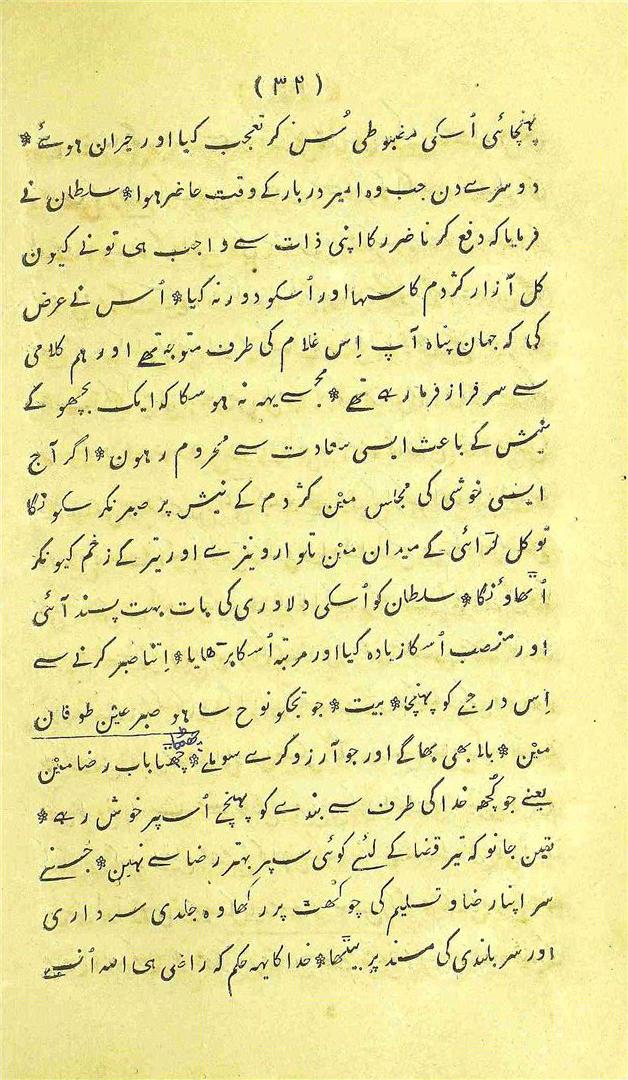 (۳۲)
پہنچائی اُسکی مضبوطی سُن کر تعجب کیا اور حیران ہوئے *
دوسرے دن جب وہ امیر دربار کے وقت حاضر ہوا * سلطان نے
فرمایا کہ دفع کرنا ضرر کا اپنی ذات سے واجب ہی تو نے کیون
کل آزار کژدم کا سہا اور اُسکو دور نہ کیا * اُس نے عرض
کی کہ جہان پناہ آپ اِس غلام کی طرف متوجہ تھے اور ہم کلامی
سے سرفراز فرمارہے تھے * مجھسے یہہ نہ ہو سکا کہ ایک بچھو کے
نیش کے باعث ایسی سعادت سے محروم رہون * اگر آج
ایسی خوشی کی مجلس میٚن کژدم کے نیش پر صبر نکر سکونگا
تو کل لڑائی کے میدان میٚن تلوار و نیزے اور تیر کے زخم کیونکر
اُٹھاؤنگا * سلطان کو اُسکی دلاوری کی بات بہت پسند آئی
اور منصب اُسکا زیادہ کیا اور مرتبہ اُسکا بڑھایا * اِتنا صبر کرنے سے
اِس درجے کو پہنچا * بیت * جو تجکو نوح سا ہو صبر عیٚن طوفان
میٚن * بلا بھی بھاگے اور جو آرزو کرے سو ملے * چھٹا باب رضا میٚن
یعنے جو کُچھ خدا کی طرف سے بندے کو پہنچے اُسپر خوش رہے *
یقین جانو کہ تیر قضا کے لئے کوئی سپر بہتر رضا سے نہین * جسنے
سر اپنا رضا و تسلیم کی چوکھٹ پر رکھا وہ جلدی سرداری
اور سربلندی کی مسند پر بیٹھا * خدا کا یہہ حکم کہ راضی ہی اللہ اُنسے